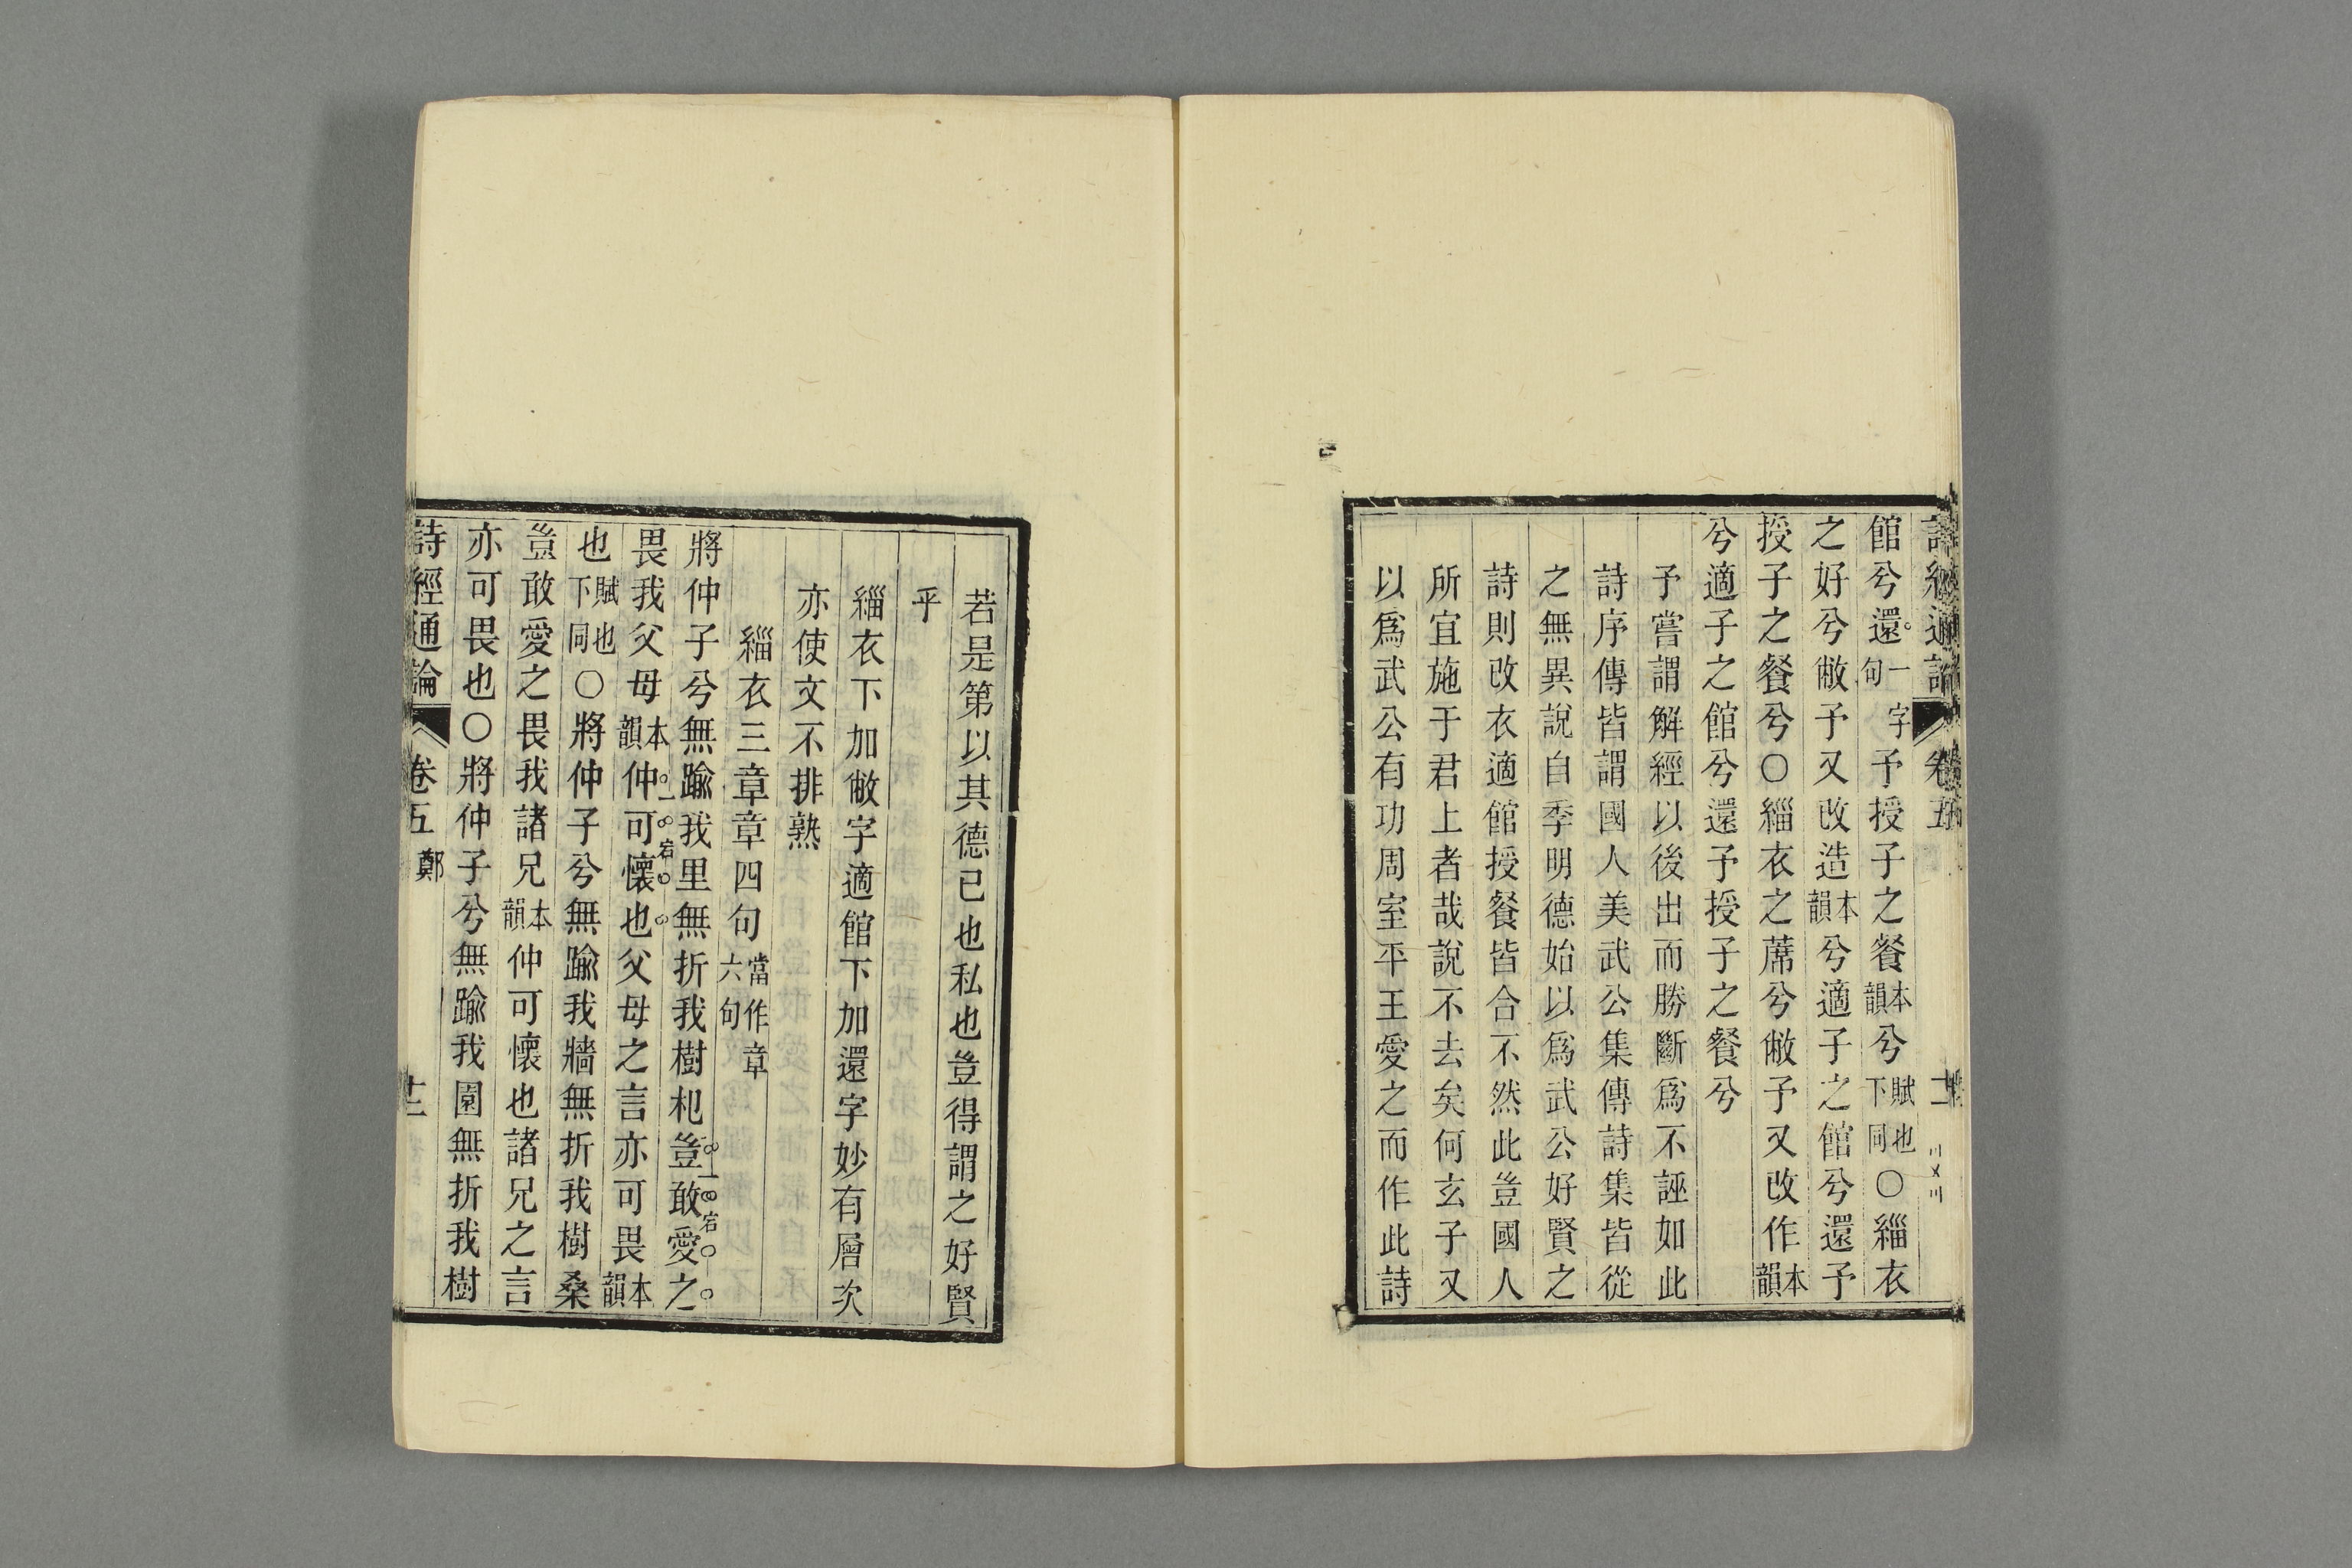 詩經通論 卷五 十一
館兮還一字句予授子之餐本韻兮賦也下同○緇衣
之好兮敝予又改造本韻兮適子之館兮還予
授子之餐兮○緇衣之蓆兮敝予又改作本韻
兮適子之館兮還予授子之餐兮
予嘗謂解經以後出而勝斷爲不誣如此
詩序傳皆謂國人美武公集傳詩集皆從
之無異說自季明德始以爲武公好賢之
詩則改衣適館授餐皆合不然此豈國人
所宜施于君上者哉說不去矣何玄子又
以爲武公有功周室平王愛之而作此詩
若是第以其德已也私也豈得謂之好賢
乎
緇衣下加敝字適館下加還字妙有層次
亦使文不排熟
緇衣三章章四句當作章六句
將仲子兮無踰我里無折我樹杞豈敢愛之
畏我父母本韻仲可懷也父母之言亦可畏本韻
也賦也下同○將仲子兮無踰我牆無折我樹桑
豈敢愛之畏我諸兄本韻仲可懷也諸兄之言
亦可畏也○將仲子兮無踰我園無折我樹
詩經通論 卷五 鄭 十二